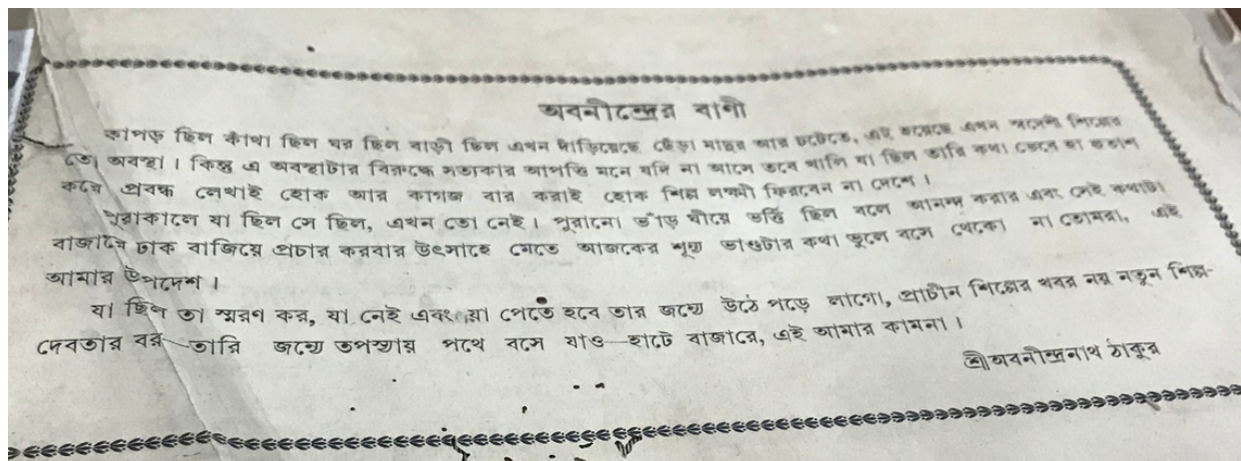 অবনীন্দ্রের বাণী
কাপড় ছিল কাঁথা ছিল ঘর ছিল বাড়ী ছিল এখন দাঁড়িয়েছে ছেঁড়া মাদুর আর চটেতে, এই হয়েছে এখন স্বদেশী শিল্পের
তো অবস্থা। কিন্তু এ অবস্থাটার বিরুদ্ধে সত্যকার আপত্তি মনে যদি না আসে তবে খালি যা ছিল তারি কথা ভেবে হা হুতাশ
করে প্রবন্ধ লেখাই হোক আর কাগজ বার করাই হোক শিল্প লক্ষ্মী ফিরবেন না দেশে।
পুরাকালে যা ছিল সে ছিল, এখন তো নেই। পুরানো ভাঁড় ঘীয়ে ভর্ত্তি ছিল বলে আনন্দ করার এবং সেই কথাটা
বাজারে ঢাক বাজিয়ে প্রচার করবার উৎসাহে মেতে আজকের শূন্য ভাণ্ডটার কথা ভুলে বসে থেকো না তোমরা, এই
আমার উপদেশ।
যা ছিল তা স্মরণ কর, যা নেই এবং যা পেতে হবে তার জন্যে উঠে পড়ে লাগো, প্রাচীন শিল্পের খবর নয় নতুন শিল্প-
দেবতার বর তারি জন্যে তপস্যায় পথে বসে যাও হাটে বাজারে, এই আমার কামনা।
শ্রীঅবনীন্দ্রনাথ ঠাকুর